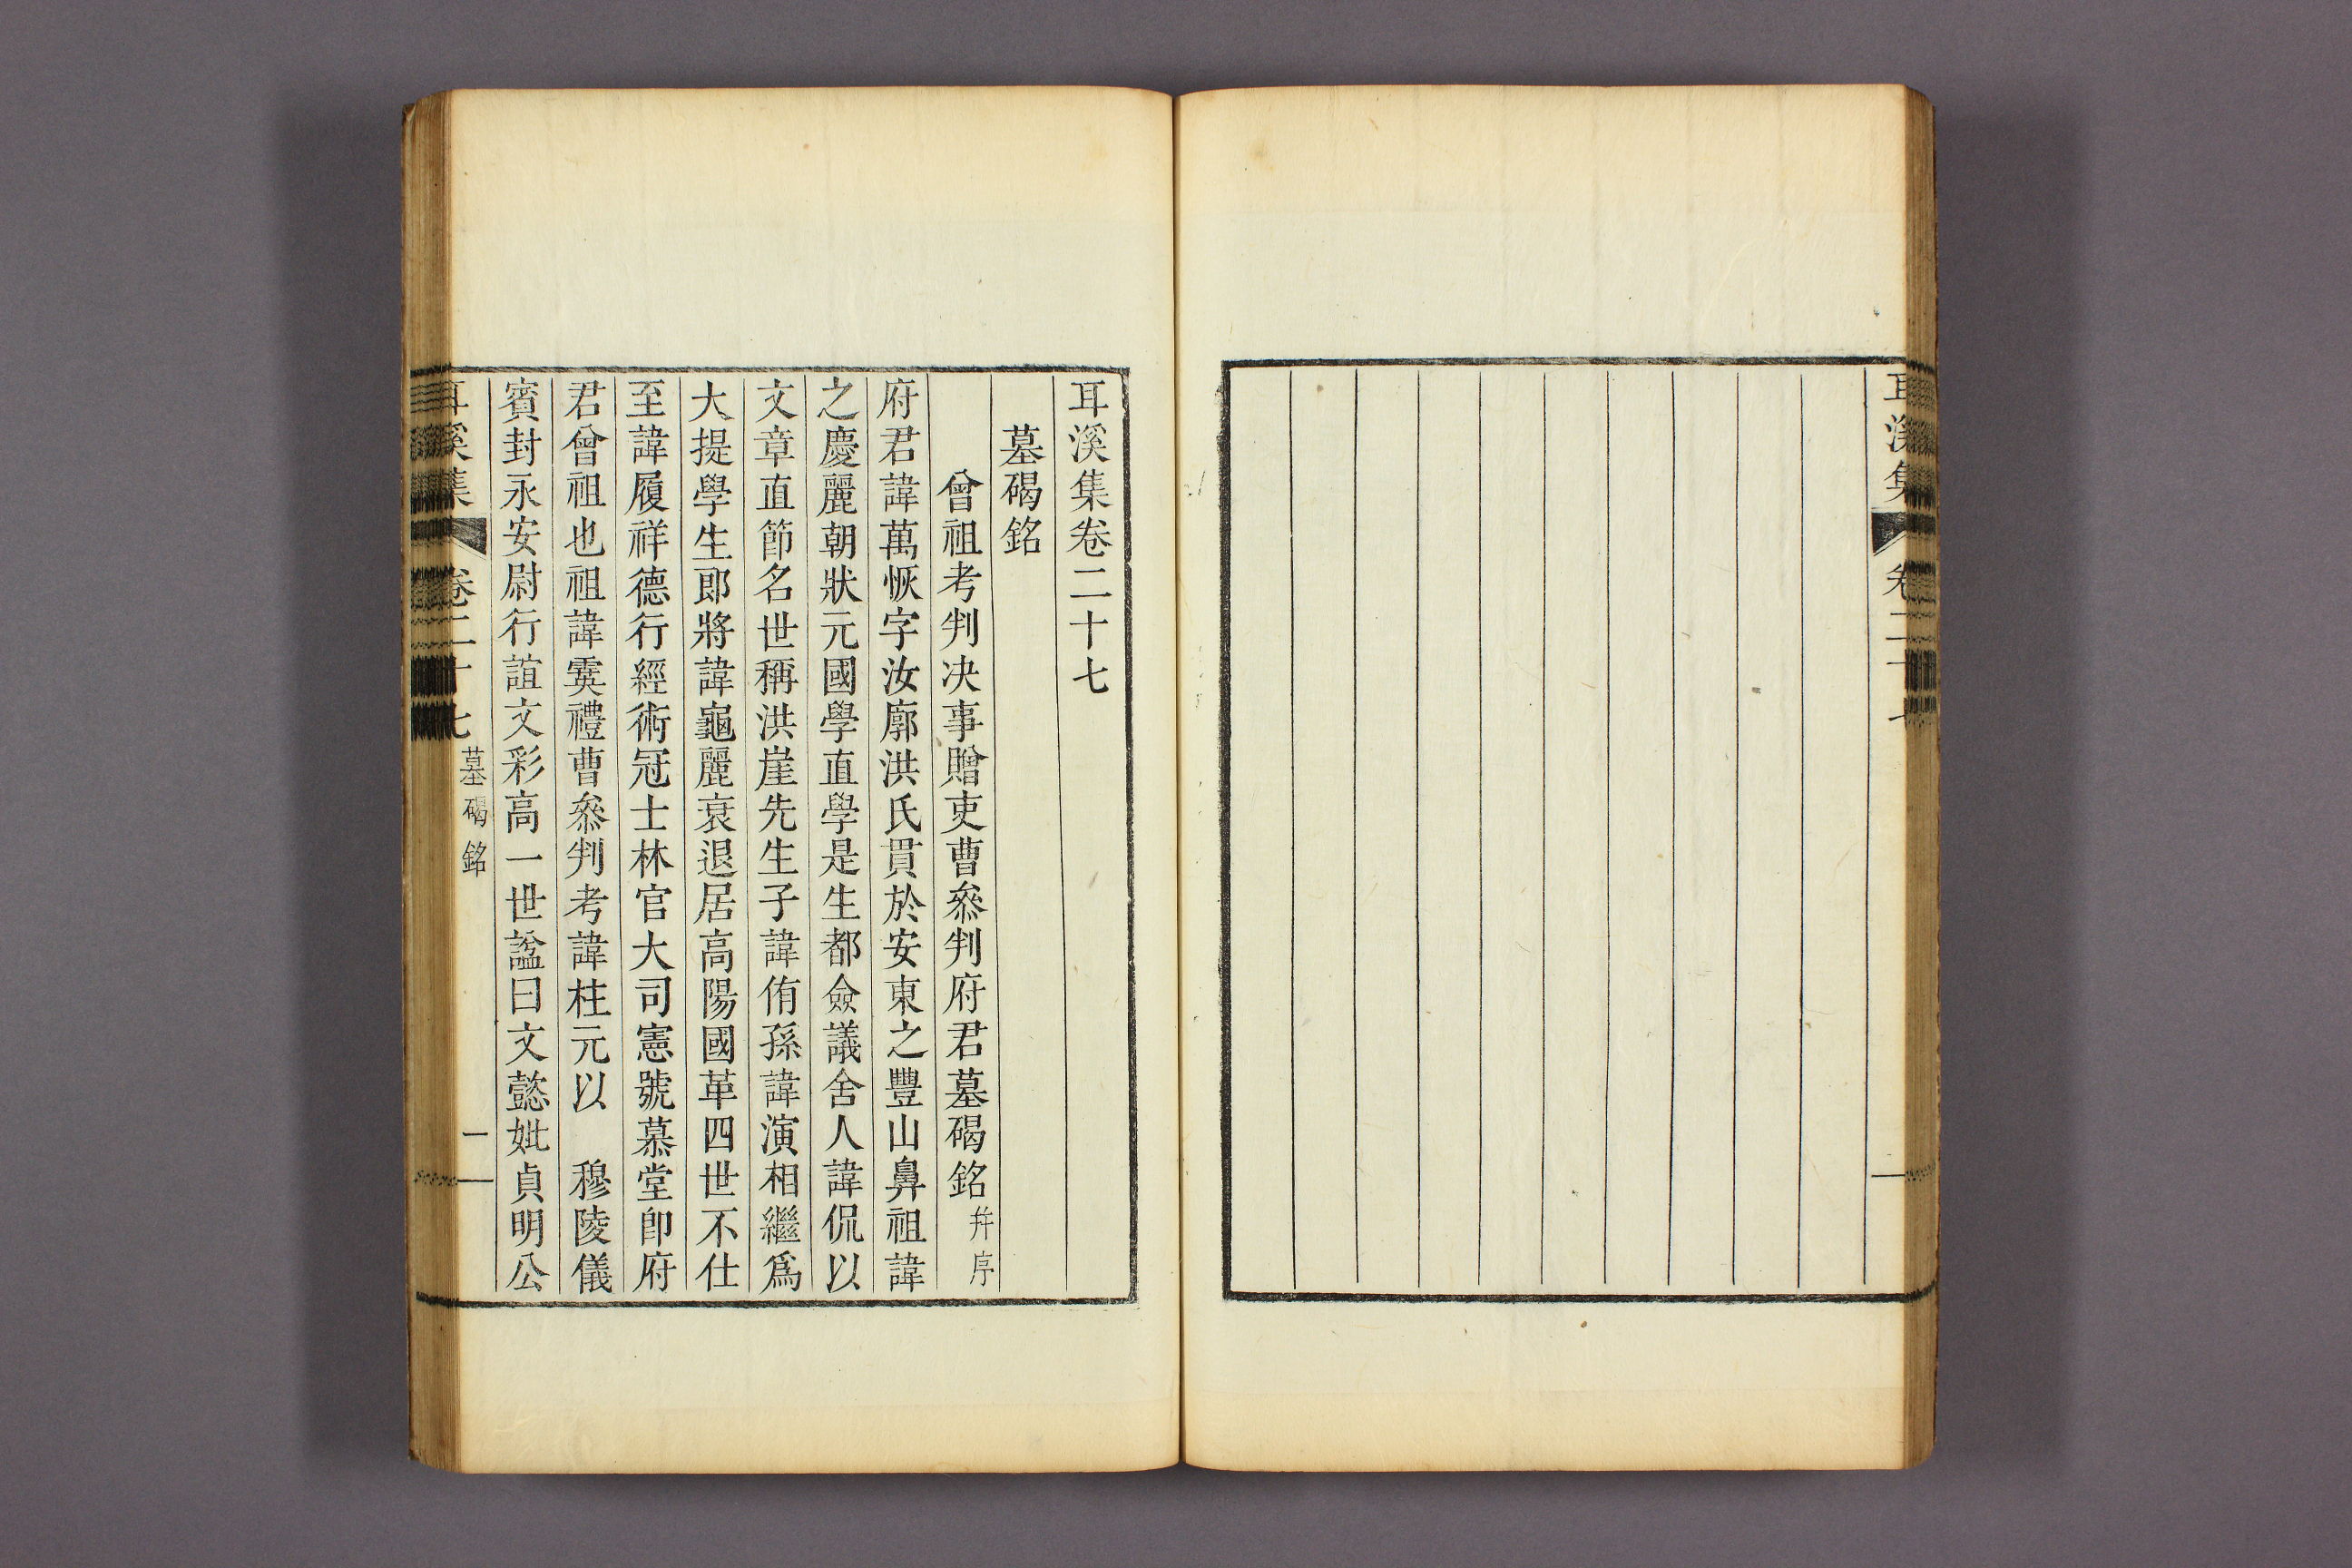 耳溪集
卷二十
耳溪集卷二十七
墓碣銘
曾祖考判決事贈吏曹叅判府君墓碣銘 幷序
府君諱萬恢字汝廓洪氏貫於安東之豐山鼻祖諱
之慶麗朝狀元國學直學是生都僉議舍人諱侃以
文章直節名世稱洪崖先生子諱侑孫諱演相繼爲
大提學生郎將諱龜麗衰退居高陽國革四世不仕
至諱履祥德行經術冠士林官大司憲號慕堂卽府
君曾祖也祖諱霙禮曹叅判考諱柱元以 穆陵儀
賓封永安尉行誼文彩高一世諡曰文懿妣貞明公
耳溪集 卷二十七 墓碣銘 一